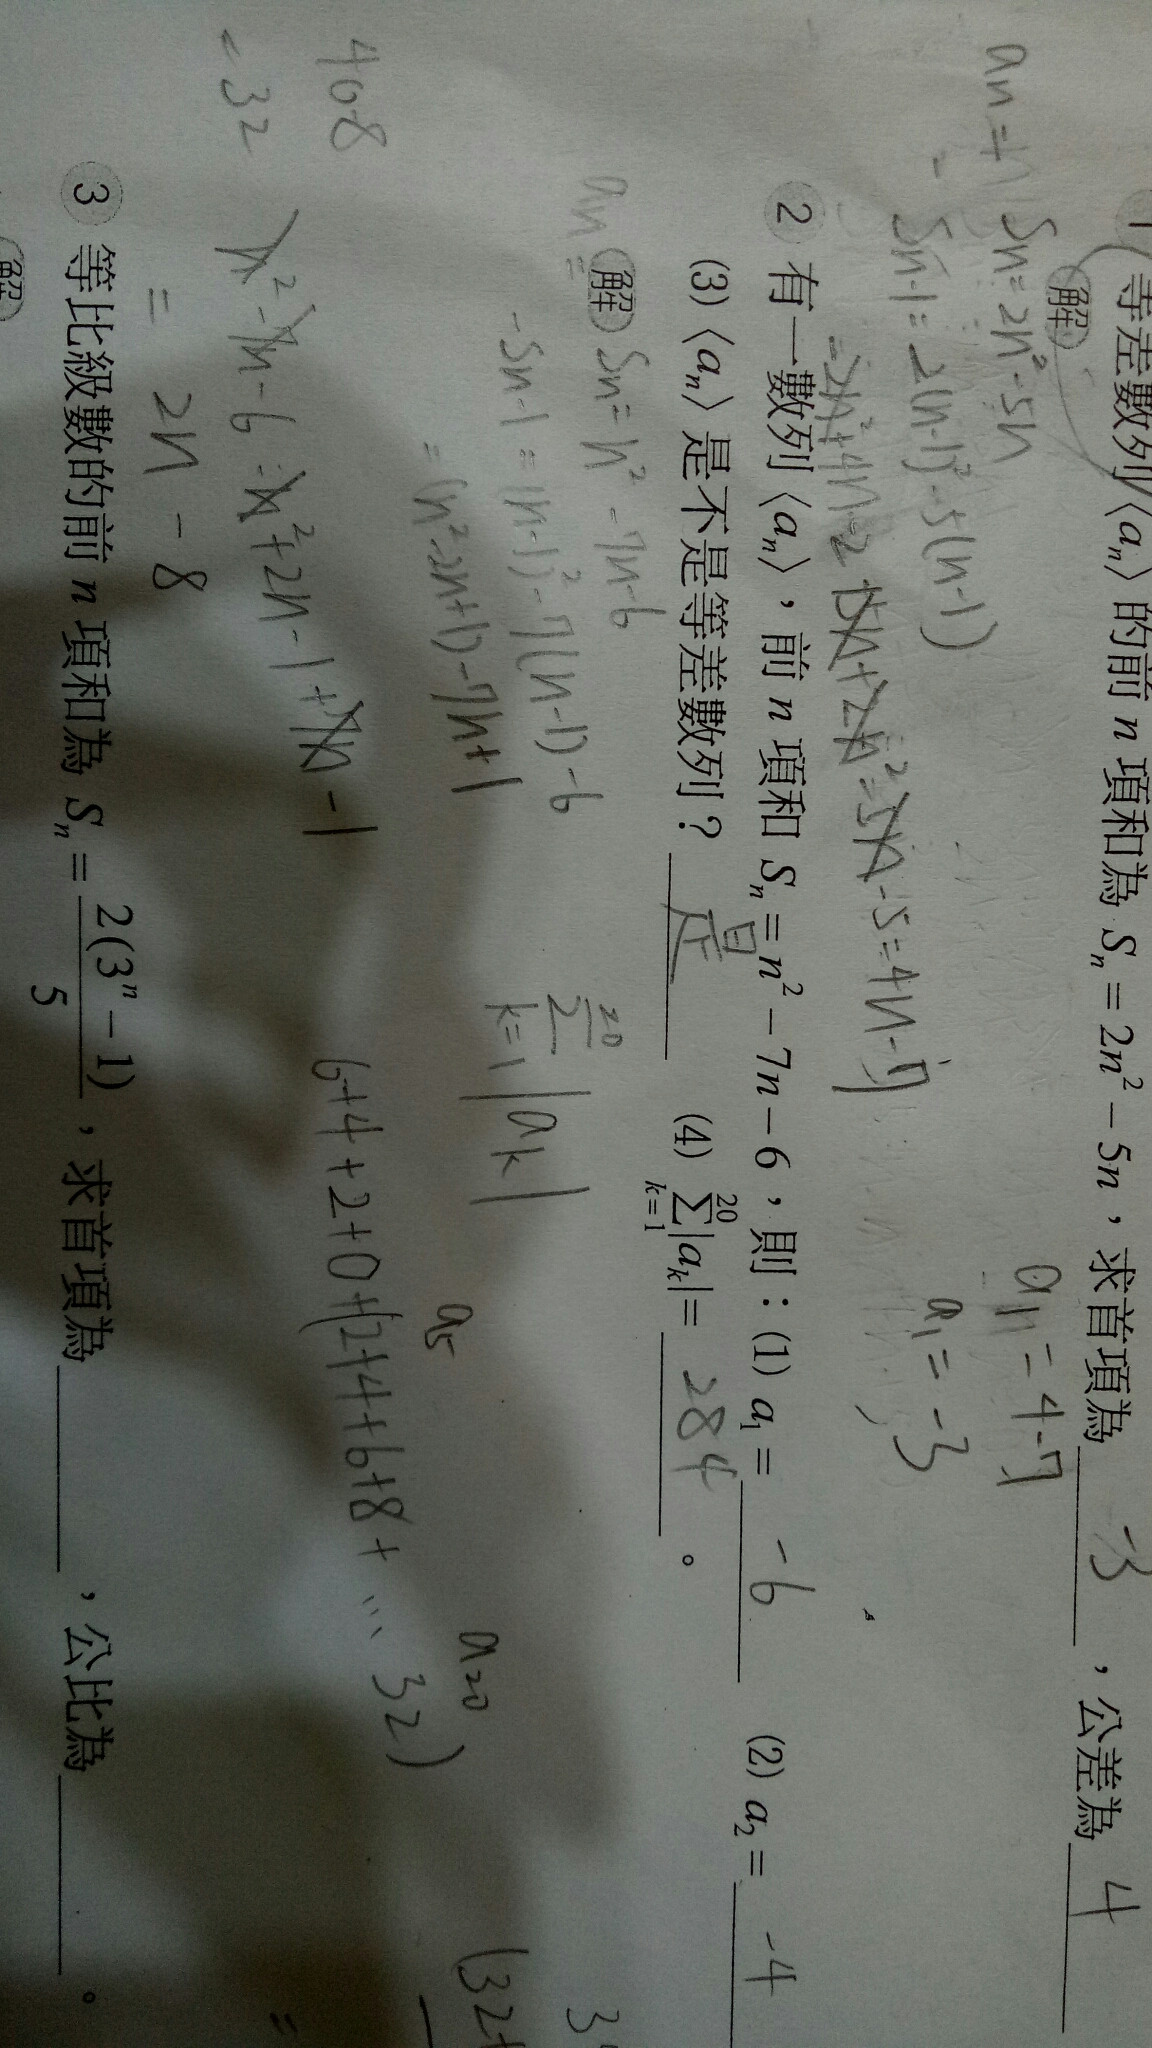 1 等差數列〈aₙ〉的前 n 項和為 Sₙ = 2n² − 5n，求首項為 -3 ，公差為 4
解
an = Sn = 2n² - 5n
- Sn-1 = 2(n-1)² - 5(n-1)
= -2n² + 4n - 2 + 5n + 2n² = 5n - 5 = 4n - 7
a1 = 4-7
a1 = -3
2 有一數列〈aₙ〉，前 n 項和 Sₙ = n² − 7n − 6，則：(1) a₁ = -6 (2) a₂ = -4
(3)〈aₙ〉是不是等差數列？ 是 (4) ∑|aₖ| = 284 。
20
k=1
解 Sn = n² - 7n - 6
an =
- Sn-1 = (n-1)² - 7(n-1) - 6
= (n² - 2n + 1) - 7n + 1
20
Σ |ak|
k=1
a5
a20
6+4+2+0+(2+4+6+8+ ... 32)
(32+
40-8
= 32
n² - 7n - 6 - n² + 2n - 1 + 7n - 1
= 2n - 8
3 等比級數的前 n 項和為 Sₙ = 2(3ⁿ − 1)/5，求首項為 ，公比為 。
解